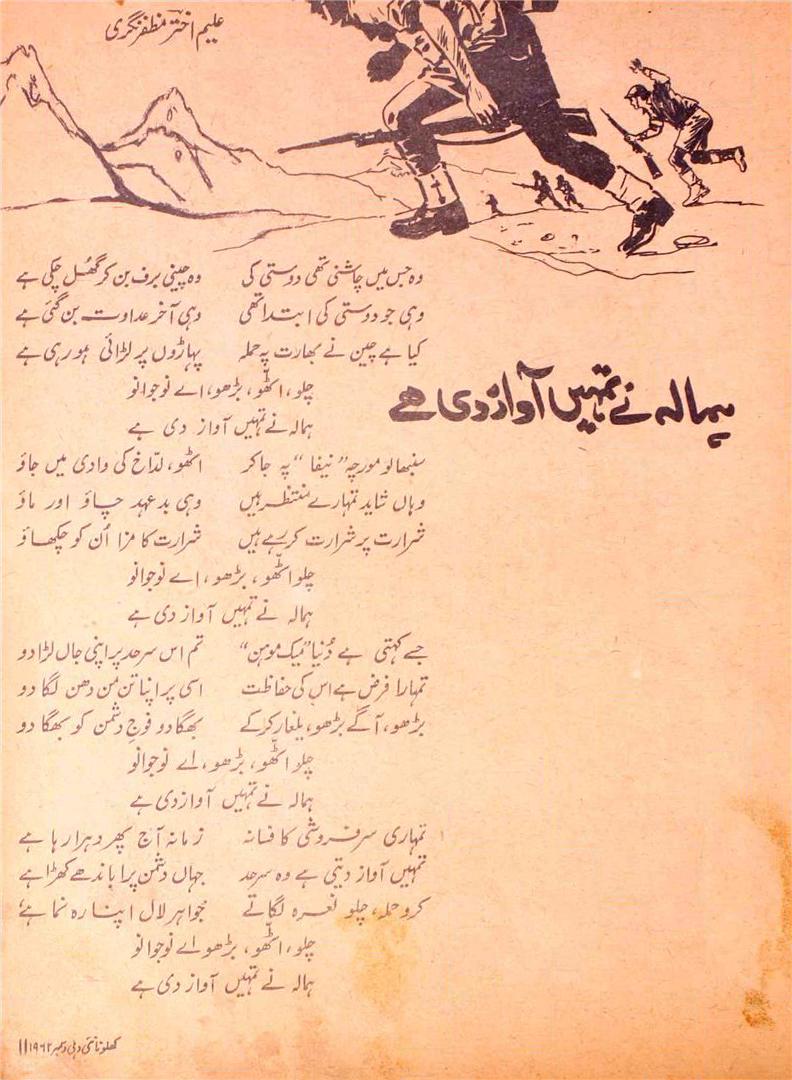 علیم اختر مظفر نگری
ہمالہ نے تمہیں آواز دی ہے
وہ جس میں چاشنی تھی دوستی کی وہ چینی برف بن کر گھُل چکی ہے
وہی جو دوستی کی ابتدا تھی وہی آخر عداوت بن گئی ہے
کیا ہے چین نے بھارت پہ حملہ پہاڑوں پر لڑائی ہو رہی ہے
چلو، اٹھّو، بڑھو، اے نوجوانو
ہمالہ نے تمہیں آواز دی ہے
سنبھالو مورچہ "نیفا" پہ جا کر اٹھو، لدّاخ کی وادی میں جاؤ
وہاں شاید تمہارے منتظر ہیں وہی بدعہد چاؤ اور ماؤ
شرارت پر شرارت کر رہے ہیں شرارت کا مزا اُن کو چکھاؤ
چلو اٹھّو، بڑھو، اے نوجوانو
ہمالہ نے تمہیں آواز دی ہے
جسے کہتی ہے دُنیا "میک موہن" تم اس سرحد پر اپنی جاں لڑا دو
تمہارا فرض ہے اس کی حفاظت اسی پر اپنا تن من دھن لگا دو
بڑھو، آگے بڑھو، یلغار کر کے بھگا دو فوجِ دشمن کو بھگا دو
چلو اٹھّو، بڑھو، اے نوجوانو
ہمالہ نے تمہیں آواز دی ہے
تمہاری سرفروشی کا فسانہ زمانہ آج پھر دہرا رہا ہے
تمہیں آواز دیتی ہے وہ سرحد جہاں دشمن پرا باندھے کھڑا ہے
کرو حملہ، چلو نعرہ لگاتے جواہر لال اپنا رہ نما ہے
چلو، اٹھّو، بڑھو اے نوجوانو
ہمالہ نے تمہیں آواز دی ہے
کھلونا نئی دہلی دسمبر ۱۹۶۲ء ۱۱